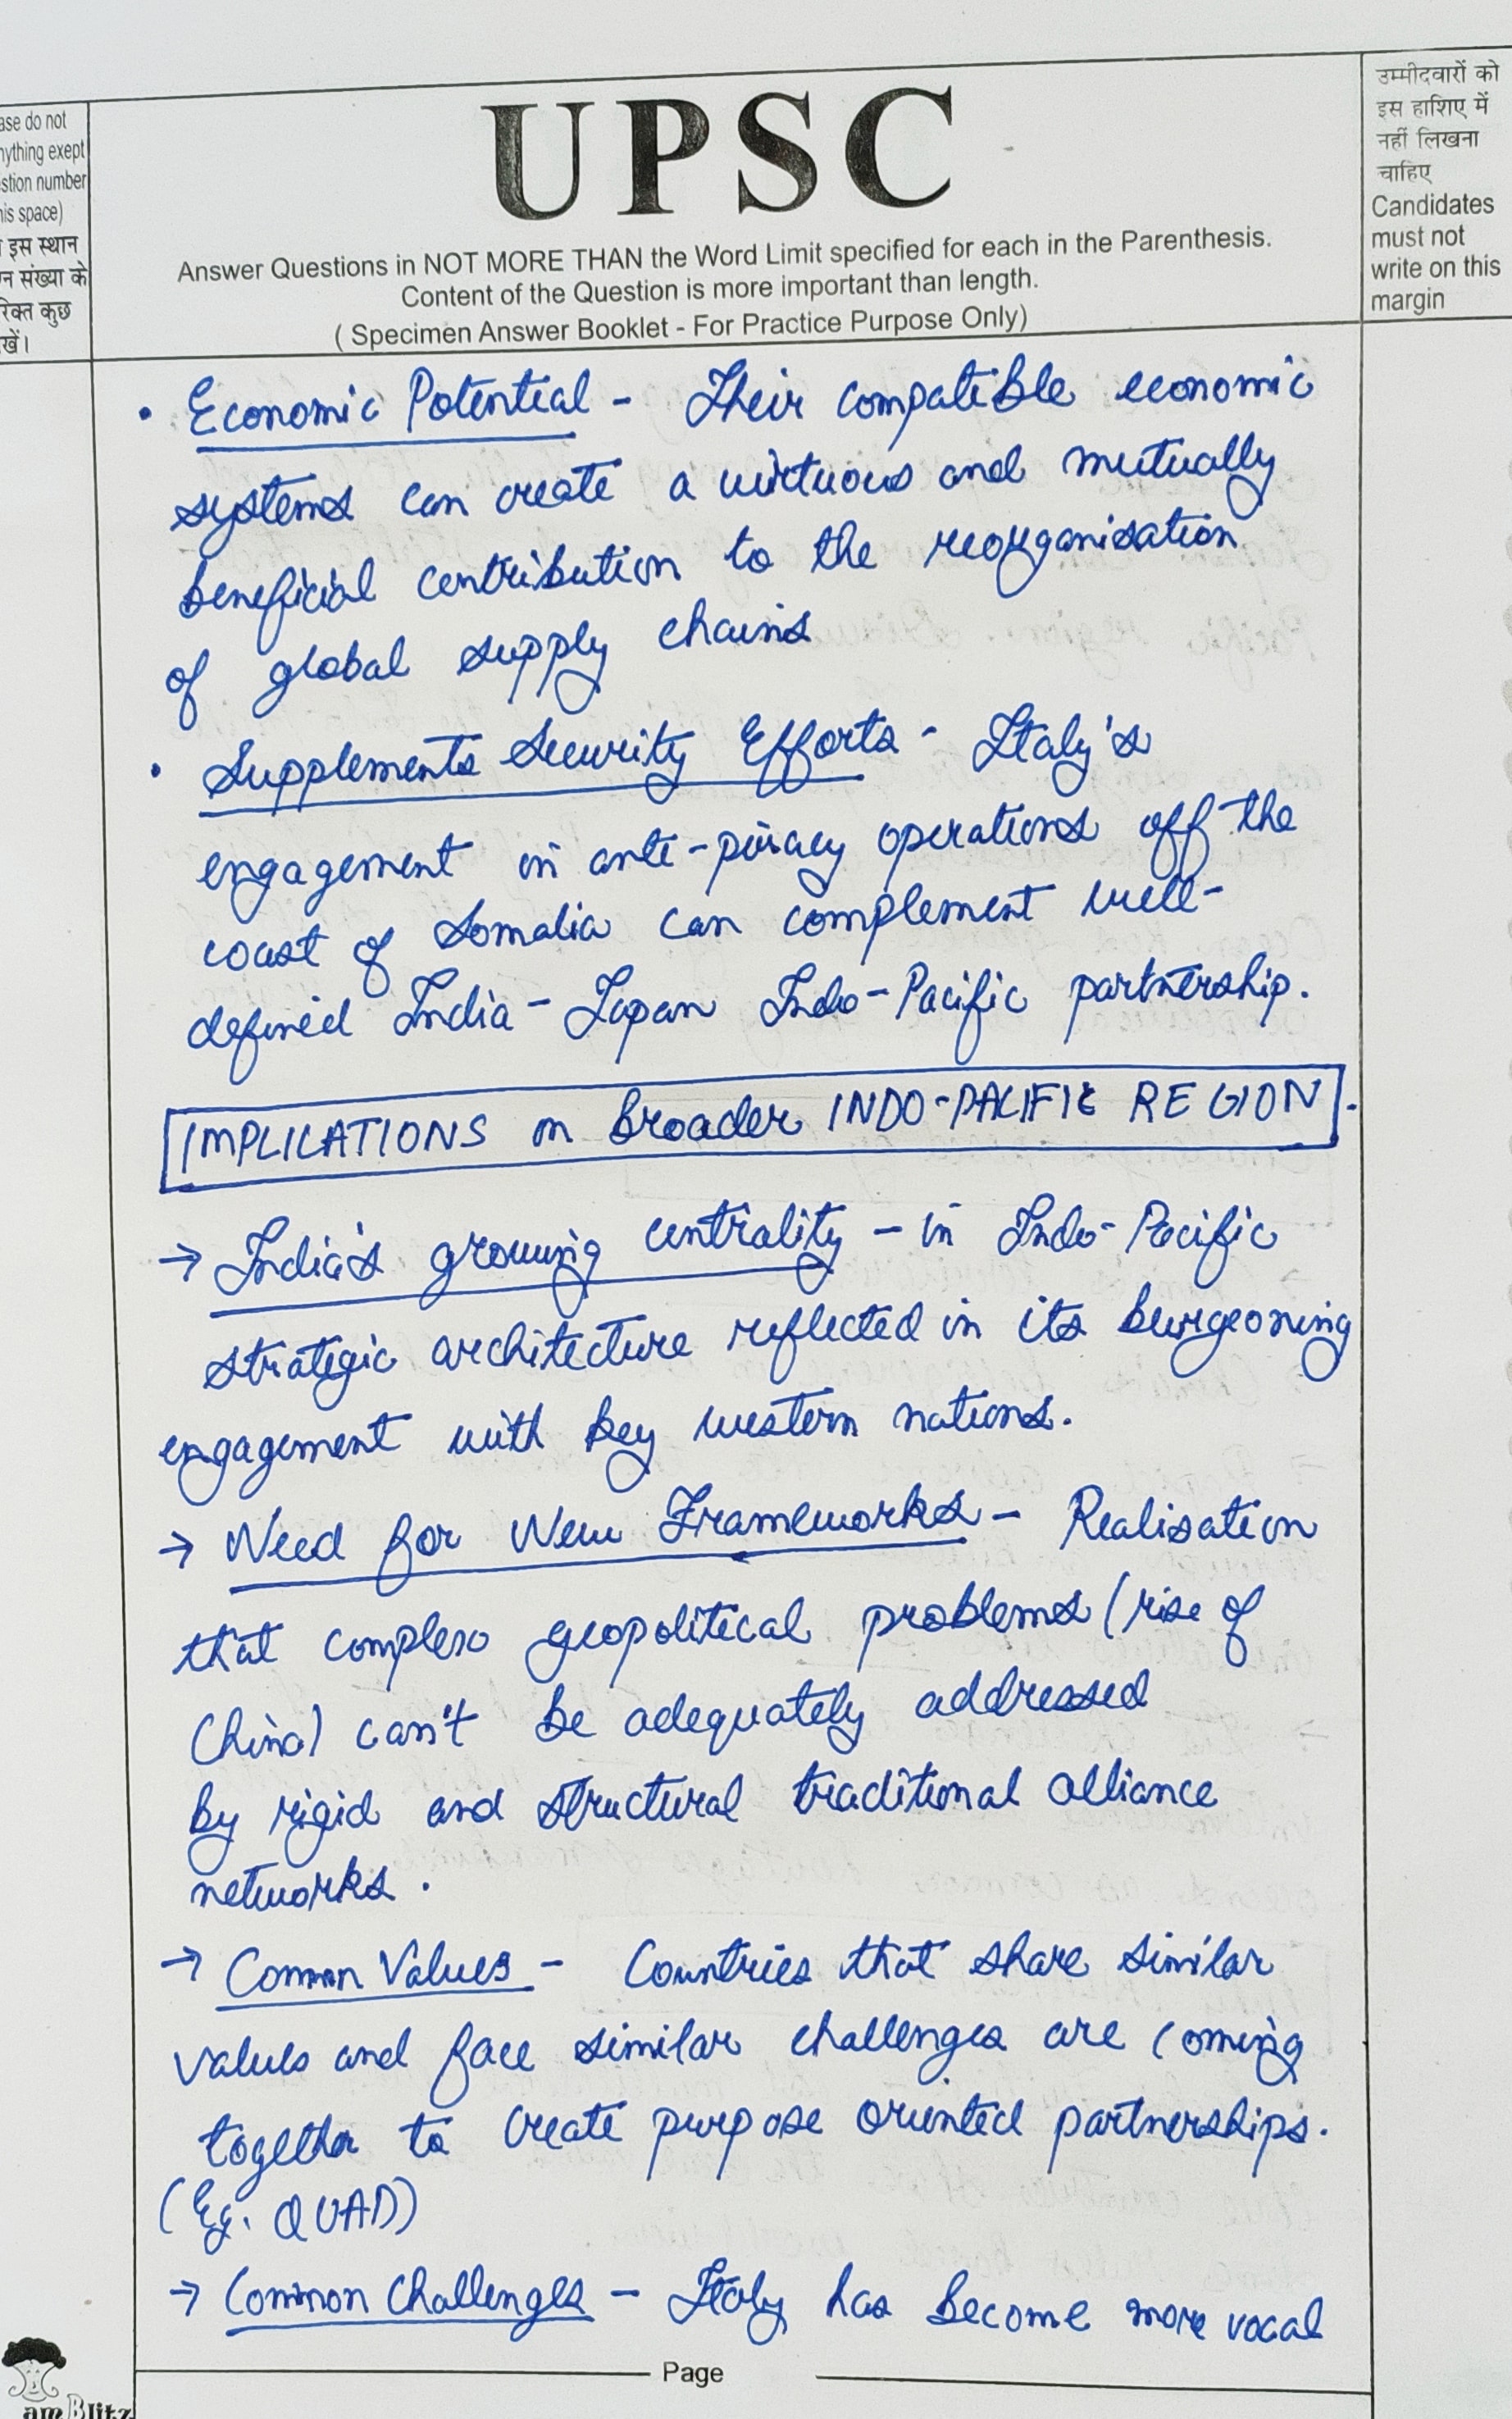 ase do not
nything exept
stion number
his space)
इस स्थान
न संख्या के
रिक्त कुछ
खें।
UPSC
Answer Questions in NOT MORE THAN the Word Limit specified for each in the Parenthesis.
Content of the Question is more important than length.
( Specimen Answer Booklet - For Practice Purpose Only)
उम्मीदवारों को
इस हाशिए में
नहीं लिखना
चाहिए
Candidates
must not
write on this
margin
• Economic Potential - Their compatible economic
systems can create a virtuous and mutually
beneficial contribution to the reorganisation
of global supply chains
• Supplements Security Efforts - Italy's
engagement in anti-piracy operations off the
coast of Somalia can complement well-
defined India-Japan Indo-Pacific partnership.
IMPLICATIONS on Broader INDO-PACIFIC REGION.
→ India's growing centrality - in Indo-Pacific
strategic architecture reflected in its burgeoning
engagement with key western nations.
→ Need for New Frameworks - Realisation
that complex geopolitical problems (rise of
China) can't be adequately addressed
by rigid and structural traditional alliance
networks.
→ Common Values - Countries that share similar
values and face similar challenges are coming
together to create purpose oriented partnerships.
(Eg. QUAD)
→ Common Challenges - Italy has become more vocal
Page
am Blitz